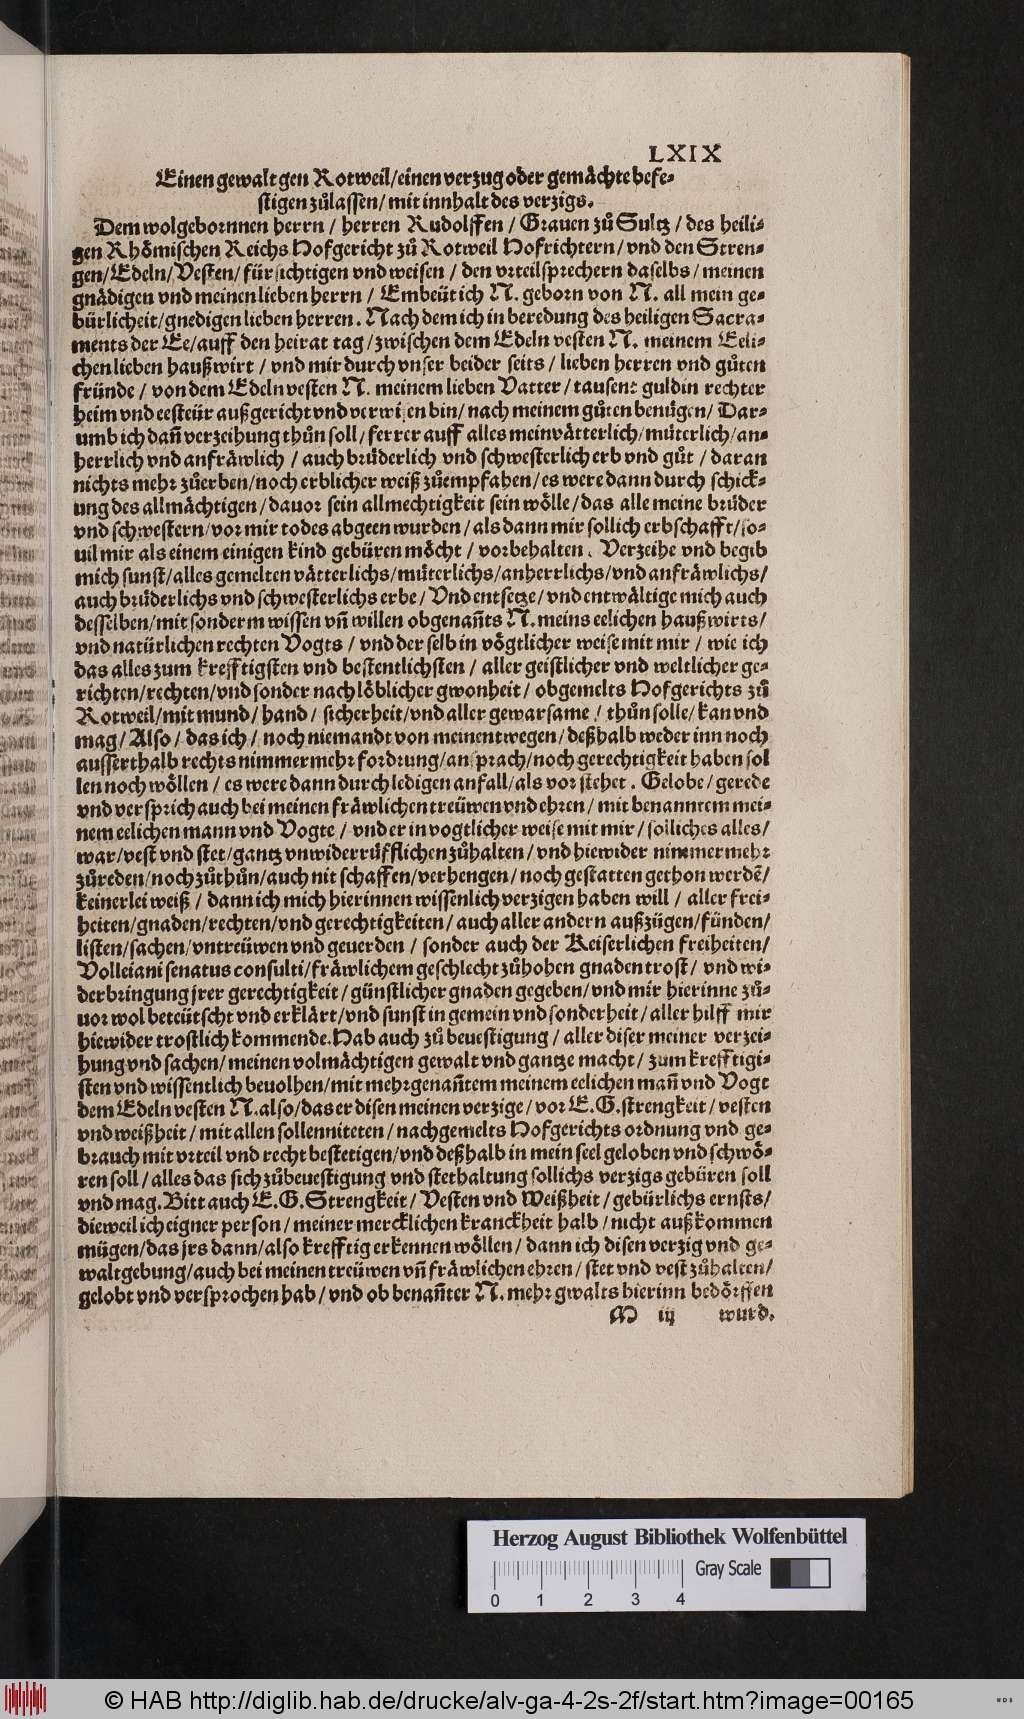 LXIX
Einen gewalt gen Rotweil/einen verzug oder gemächte befe⸗
stigen zůlassen/mit innhalt des verzigs.
Dem wolgebornnen herrn / herren Rudolffen / Grauen zů Sultz / des heili⸗
gen Rhömischen Reichs Hofgericht zů Rotweil Hofrichtern/vnd den Stren⸗
gen/Edeln/Vesten/fürsichtigen vnd weisen / den vrteilsprechern daselbs/meinen
gnädigen vnd meinen lieben herrn / Embeüt ich N. geborn von N. all mein ge⸗
bürlicheit/gnedigen lieben herren. Nach dem ich in beredung des heiligen Sacra⸗
ments der Ee/auff den heirat tag/zwischen dem Edeln vesten N. meinem Eeli⸗
chen lieben haußwirt / vnd mir durch vnser beider seits / lieben herren vnd gůten
fründe / von dem Edeln vesten N. meinem lieben Vatter/tausent guldin rechter
heim vnd eesteür außgericht vnd verwisen bin/nach meinem gůten benügen/Dar⸗
umb ich dañ verzeihung thůn soll/ferrer auff alles mein vätterlich/müterlich/an⸗
herrlich vnd anfräwlich / auch brüderlich vnd schwesterlich erb vnd gůt / daran
nichts mehr zůerben/noch erblicher weiß zůempfahen/es were dann durch schick⸗
ung des allmächtigen/dauor sein allmechtigkeit sein wölle/das alle meine brüder
vnd schwestern/vor mir todes abgeen wurden/als dann mir sollich erbschafft/so⸗
uil mir als einem einigen kind gebüren möcht / vorbehalten. Verzeihe vnd begib
mich sunst/alles gemelten vätterlichs/müterlichs/anherrlichs/vnd anfräwlichs/
auch brüderlichs vnd schwesterlichs erbe/Vnd entsetze/vnd entwältige mich auch
desselben/mit sonderm wissen vñ willen obgenañts N. meins eelichen haußwirts/
vnd natürlichen rechten Vogts / vnd der selb in vögtlicher weise mit mir / wie ich
das alles zum krefftigsten vnd bestentlichsten / aller geistlicher vnd weltlicher ge⸗
richten/rechten/vnd sonder nach löblicher gwonheit/obgemelts Hofgerichts zů
Rotweil/mit mund/hand/sicherheit/vnd aller gewarsame/thůn solle/kan vnd
mag/Also/das ich/noch niemandt von meinentwegen/deßhalb weder inn noch
ausserthalb rechts nimmermehr fordrung/ansprach/noch gerechtigkeit haben sol
len noch wöllen / es were dann durch ledigen anfall/als vor stehet. Gelobe/gerede
vnd versprich auch bei meinen fräwlichen treüwen vnd ehren/mit benanntem mei⸗
nem eelichen mann vnd Vogte / vnd er in vogtlicher weise mit mir/solliches alles/
war/vest vnd stet/gantz vnwiderrüfflichen zůhalten/vnd hiewider nimmermehr
zůreden/noch zůthůn/auch nit schaffen/verhengen/noch gestatten gethon werdē/
keinerlei weiß / dann ich mich hierinnen wissenlich verzigen haben will / aller frei⸗
heiten/gnaden/rechten/vnd gerechtigkeiten/auch aller andern außzügen/fünden/
listen/sachen/vntreüwen vnd geuerden / sonder auch der Keiserlichen freiheiten/
Volleiani senatus consulti/fräwlichem geschlecht zůhohen gnaden trost/vnd wi⸗
derbringung jrer gerechtigkeit/günstlicher gnaden gegeben/vnd mir hierinne zů⸗
uor wol beteütscht vnd erklärt/vnd sunst in gemein vnd sonderheit/aller hilff mir
hiewider trostlich kommende. Hab auch zů beuestigung / aller diser meiner verzei⸗
hung vnd sachen/meinen volmächtigen gewalt vnd gantze macht/zum krefftigi⸗
sten vnd wissentlich beuolhen/mit mehrgenañtem meinem eelichen mañ vnd Vogt
dem Edeln vesten N. also/das er disen meinen verzige/vor E.G. strengkeit/vesten
vnd weißheit/mit allen sollenniteten/nachgemelts Hofgerichts ordnung vnd ge⸗
brauch mit vrteil vnd recht bestetigen/vnd deßhalb in mein seel geloben vnd schwö⸗
ren soll/alles das sich zůbeuestigung vnd stethaltung sollichs verzigs gebüren soll
vnd mag. Bitt auch E.G. Strengkeit/Vesten vnd Weißheit/gebürlichs ernsts/
dieweil ich eigner person/meiner mercklichen kranckheit halb/nicht außkommen
mügen/das jrs dann/also krefftig erkennen wöllen/dann ich disen verzig vnd ge⸗
waltgebung/auch bei meinen treüwen vñ fräwlichen ehren/stet vnd vest zůhalten/
gelobt vnd versprochen hab/vnd ob benañter N. mehr gwalts hierinn bedörffen
M iij wurd.
Herzog August Bibliothek Wolfenbüttel
Gray Scale
0 1 2 3 4
© HAB http://diglib.hab.de/drucke/alv-ga-4-2s-2f/start.htm?image=00165